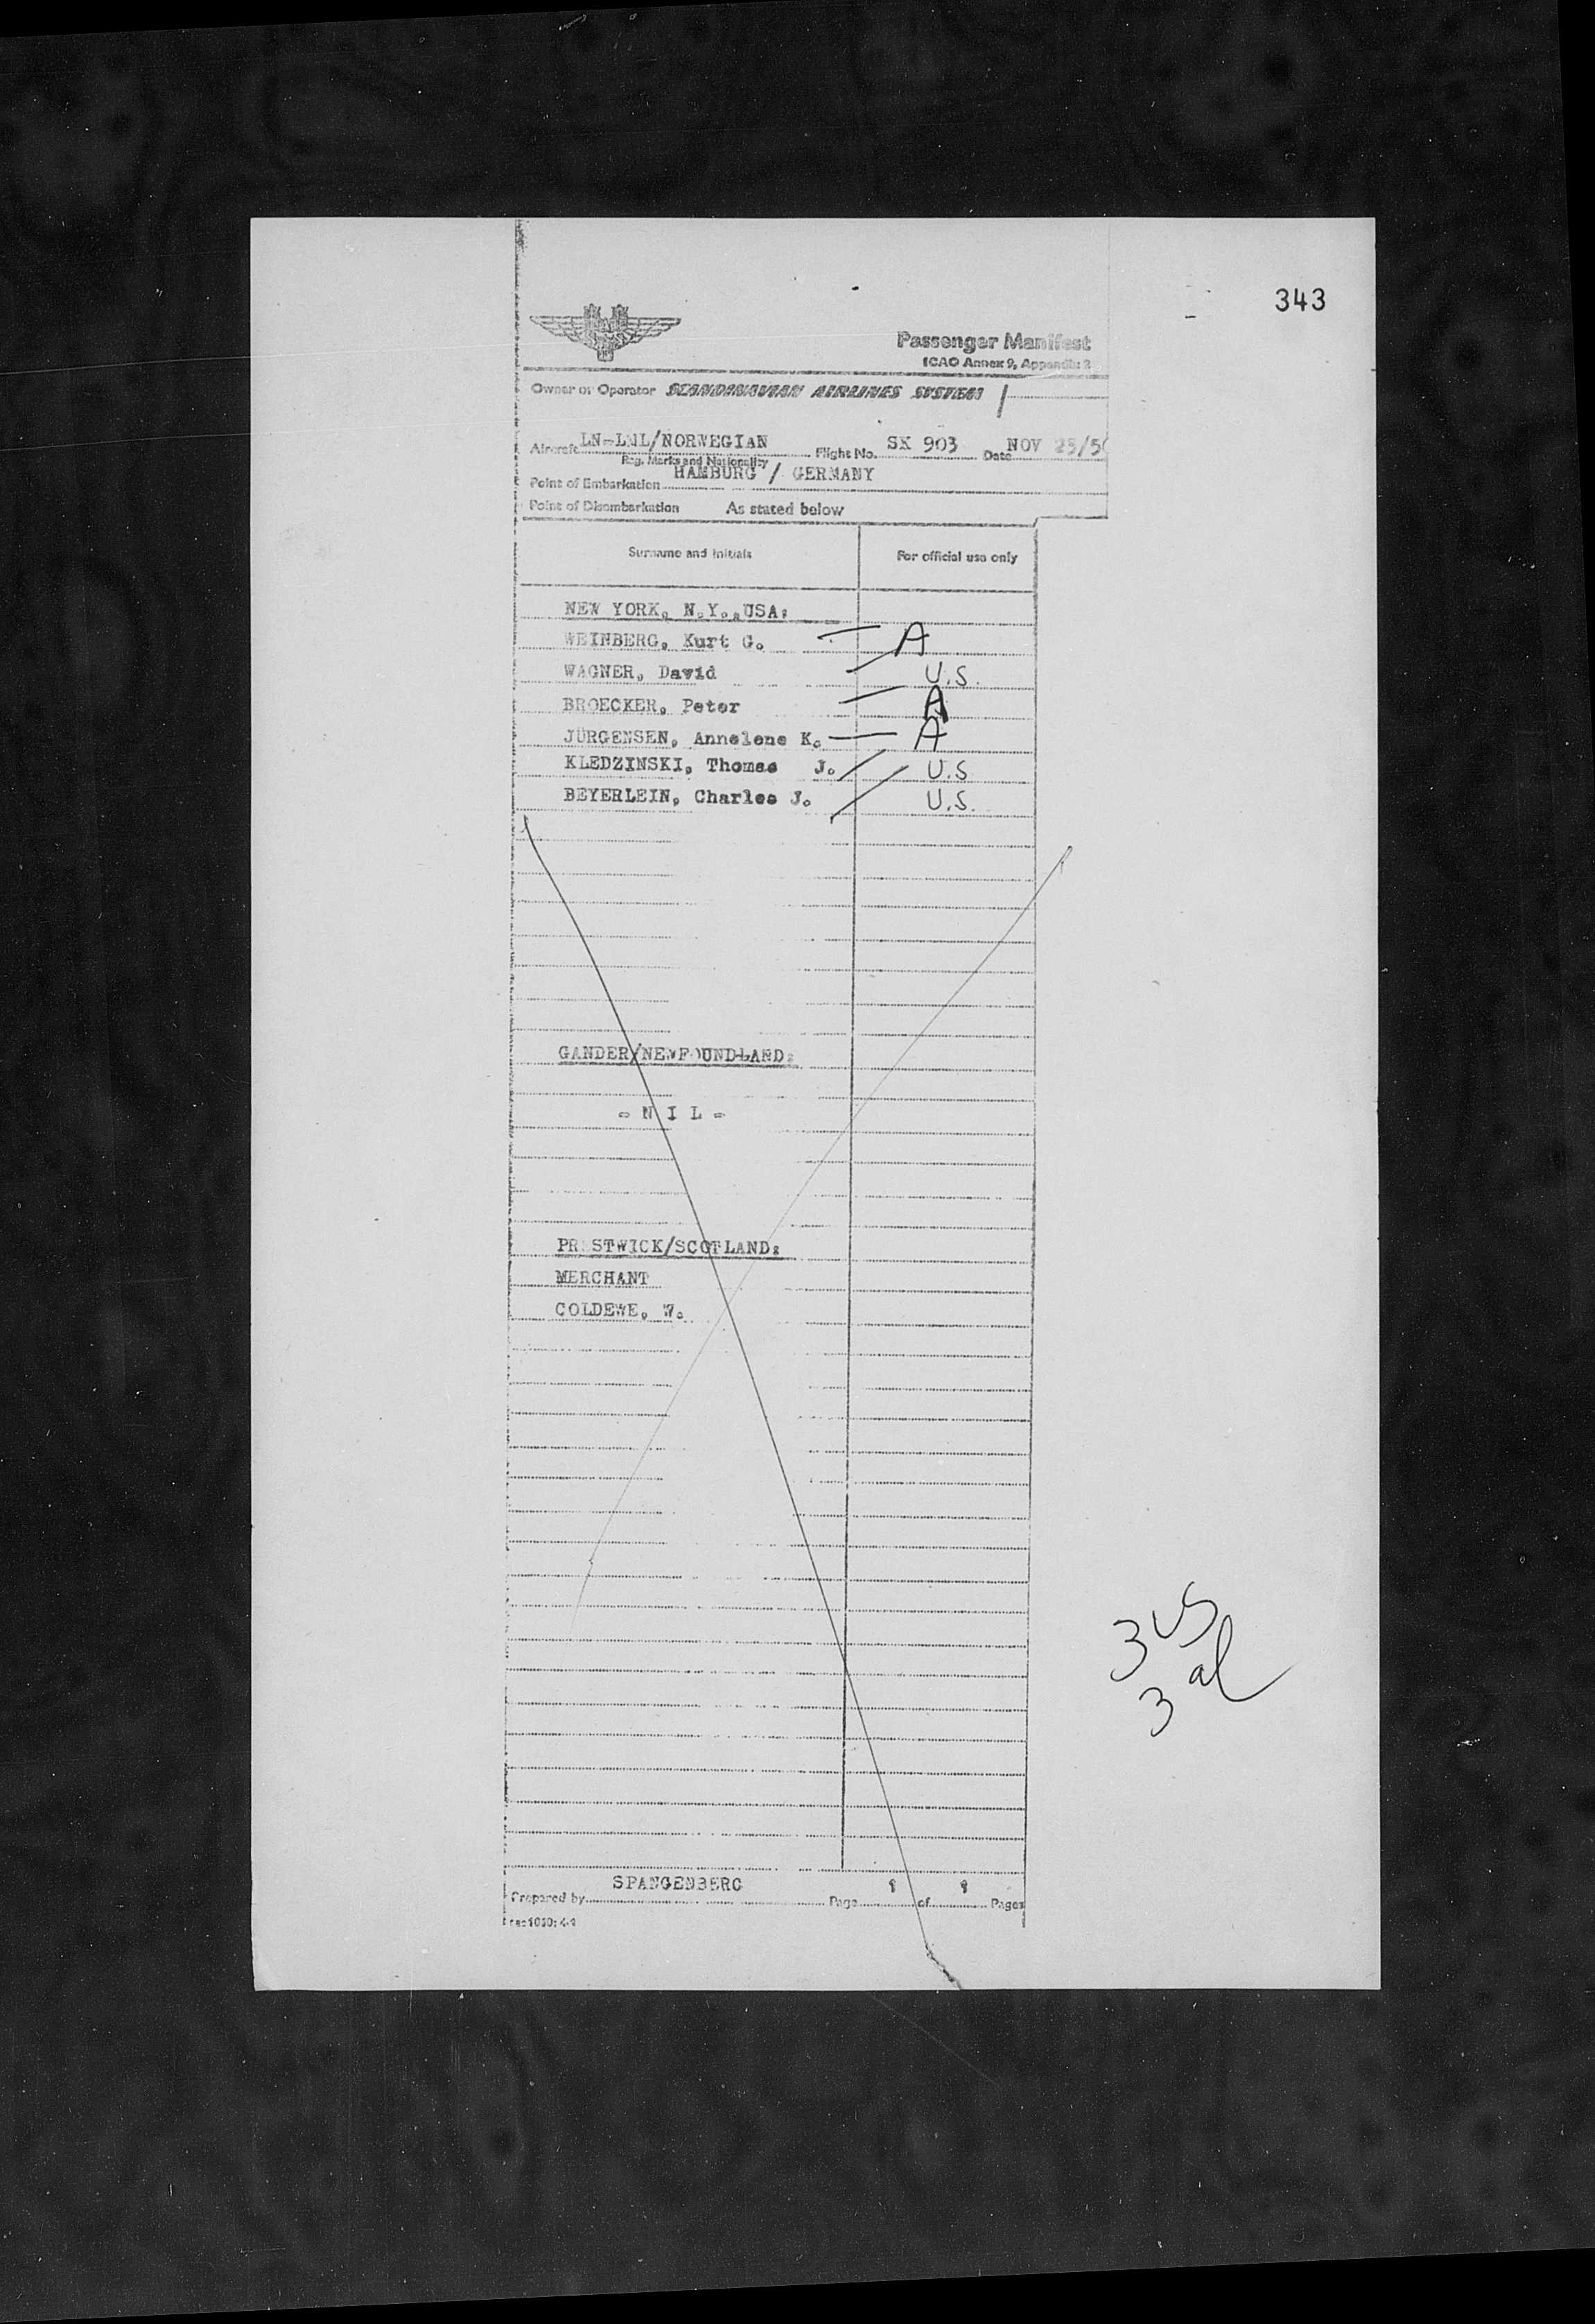 343
Passenger Manifest
ICAO Annex 9, Appendix 2
Owner or Operator SCANDINAVIAN AIRLINES SYSTEM
Aircraft LN-LML/NORWEGIAN Flight No. SK 903 Date NOV 25/5
Reg. Marks and Nationality
Point of Embarkation HAMBURG / GERMANY
Point of Disembarkation As stated below
Surname and Initials For official use only
NEW YORK, N.Y., USA:
WEINBERG, Kurt G. A
WAGNER, David U.S.
BROECKER, Peter A
JÜRGENSEN, Annelene K. A
KLEDZINSKI, Thomas J. U.S
BEYERLEIN, Charles J. U.S.
GANDER/NEWFOUNDLAND:
- N I L -
PRESTWICK/SCOTLAND:
MERCHANT
COLDEWE, W.
3 US
3 al
SPANGENBERG
Prepared by Page of Pages